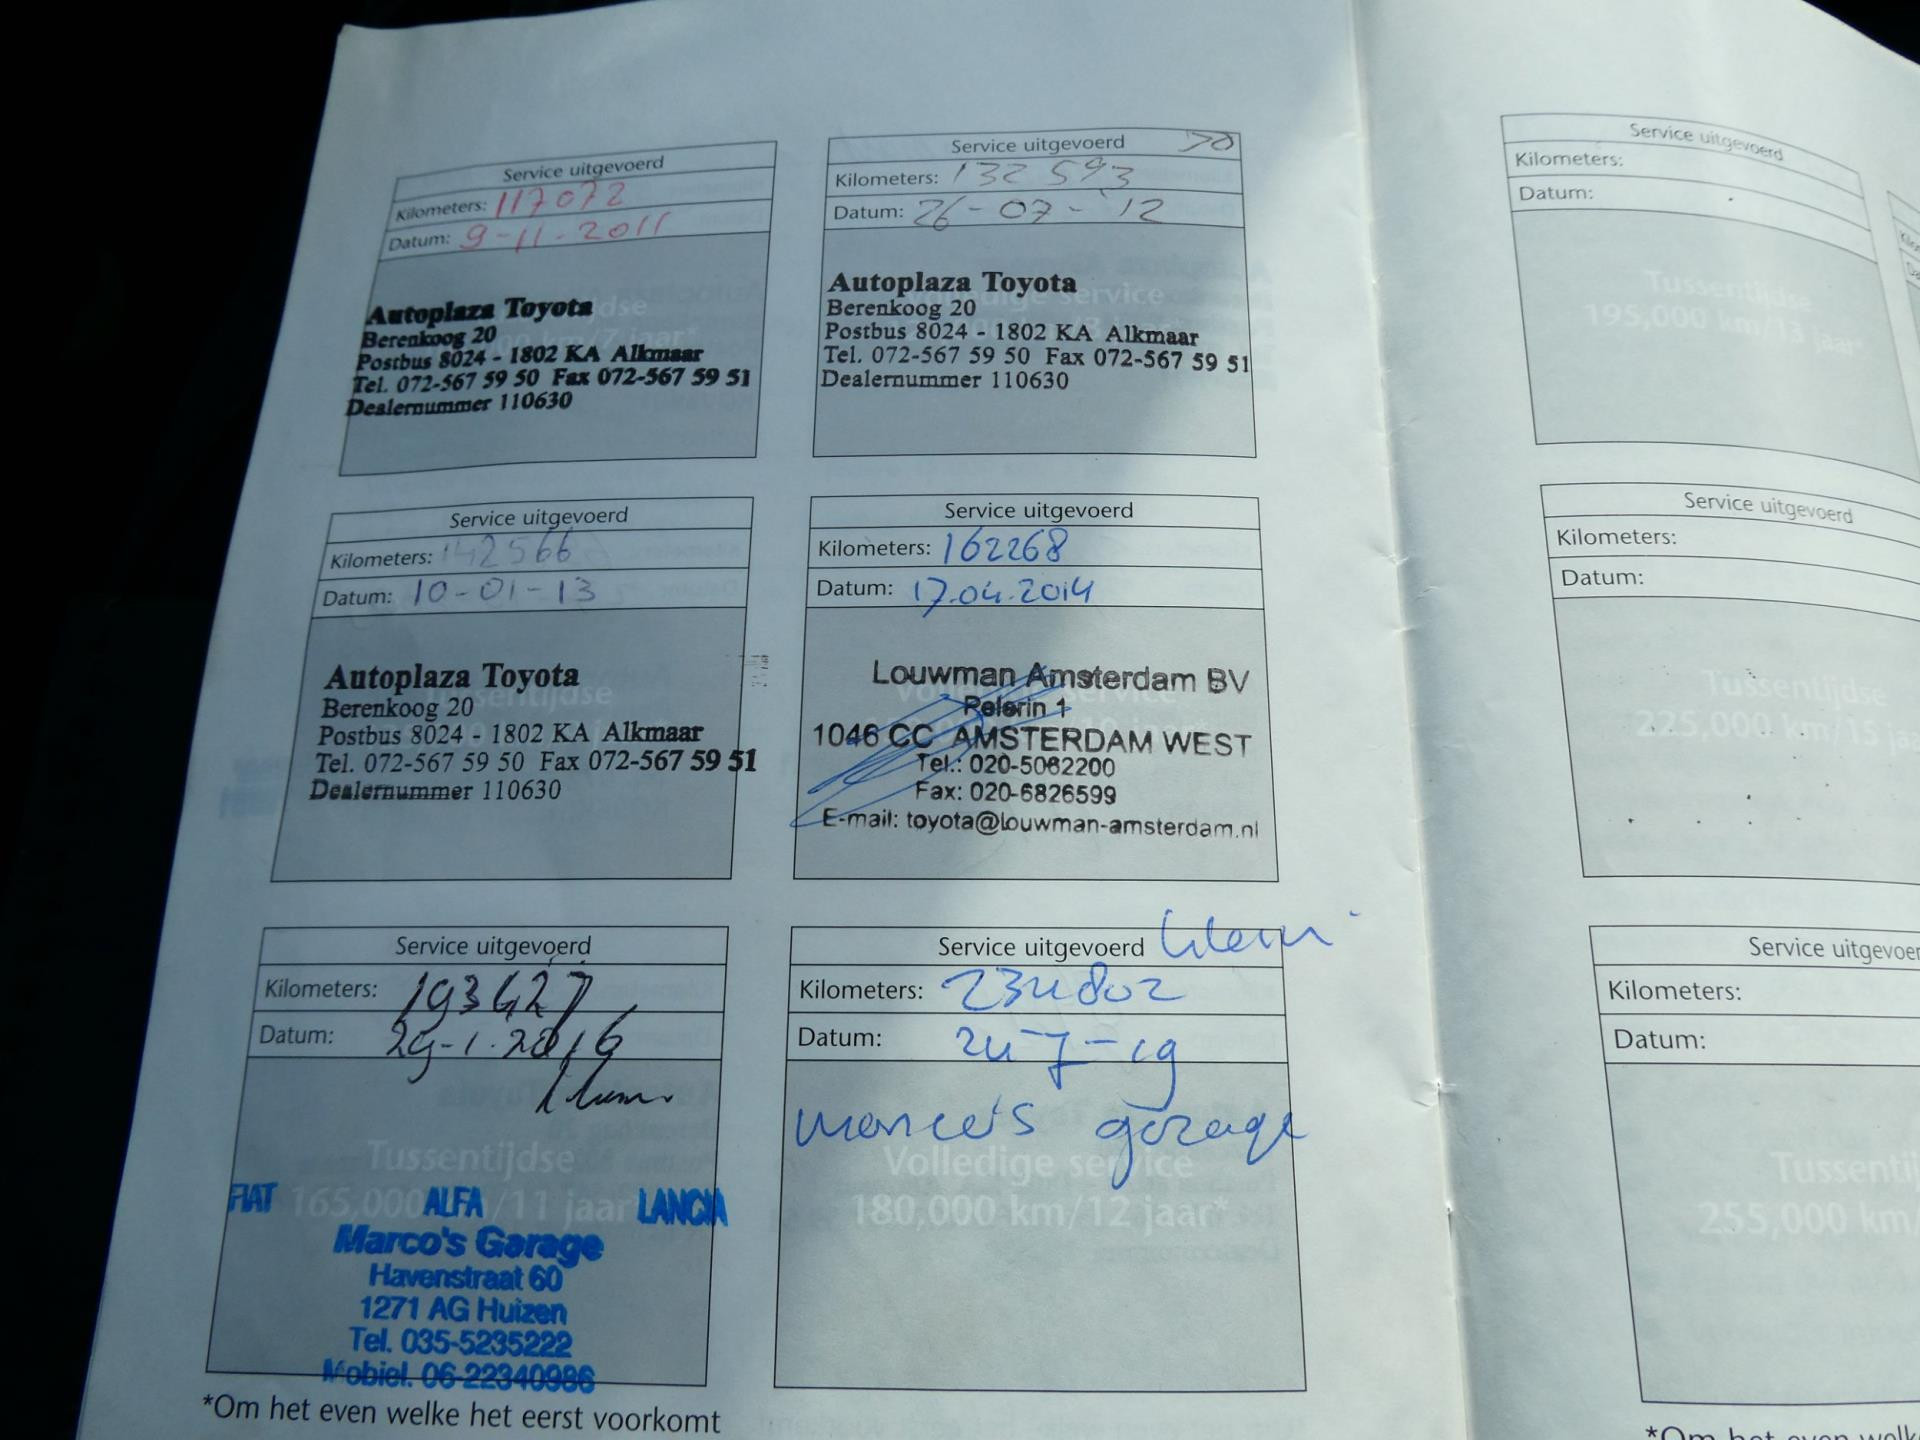 Service uitgevoerd
Kilometers: 117072
Datum: 9-11-2011
Autoplaza Toyota
Berenkoog 20
Postbus 8024 - 1802 KA Alkmaar
Tel. 072-567 59 50 Fax 072-567 59 51
Dealernummer 110630
Service uitgevoerd
Kilometers: 132593
Datum: 26-07-'12
Autoplaza Toyota
Berenkoog 20
Postbus 8024 - 1802 KA Alkmaar
Tel. 072-567 59 50 Fax 072-567 59 51
Dealernummer 110630
Service uitgevoerd
Kilometers: 142566
Datum: 10-01-13
Autoplaza Toyota
Berenkoog 20
Postbus 8024 - 1802 KA Alkmaar
Tel. 072-567 59 50 Fax 072-567 59 51
Dealernummer 110630
Tussentijdse
Service uitgevoerd
Kilometers: 162268
Datum: 17.04.2014
Louwman Amsterdam BV
Pelerin 1
1046 CC AMSTERDAM WEST
Tel.: 020-5062200
Fax: 020-6826599
E-mail: toyota@louwman-amsterdam.nl
Service uitgevoerd
Kilometers: 193427
Datum: 29-1-2016
Tussentijdse
165,000 km/11 jaar*
FIAT ALFA LANCIA
Marco's Garage
Havenstraat 60
1271 AG Huizen
Tel. 035-5235222
Mobiel. 06-22340986
Service uitgevoerd klein
Kilometers: 234802
Datum: 24-7-19
marco's garage
Volledige service
180,000 km/12 jaar*
*Om het even welke het eerst voorkomt
Service uitgevoerd
Kilometers:
Datum:
Tussentijdse
195,000 km/13 jaar*
Service uitgevoerd
Kilometers:
Datum:
Tussentijdse
225,000 km/15 jaa
Service uitgevoer
Kilometers:
Datum:
Tussentij
255,000 km/
*Om het even welk